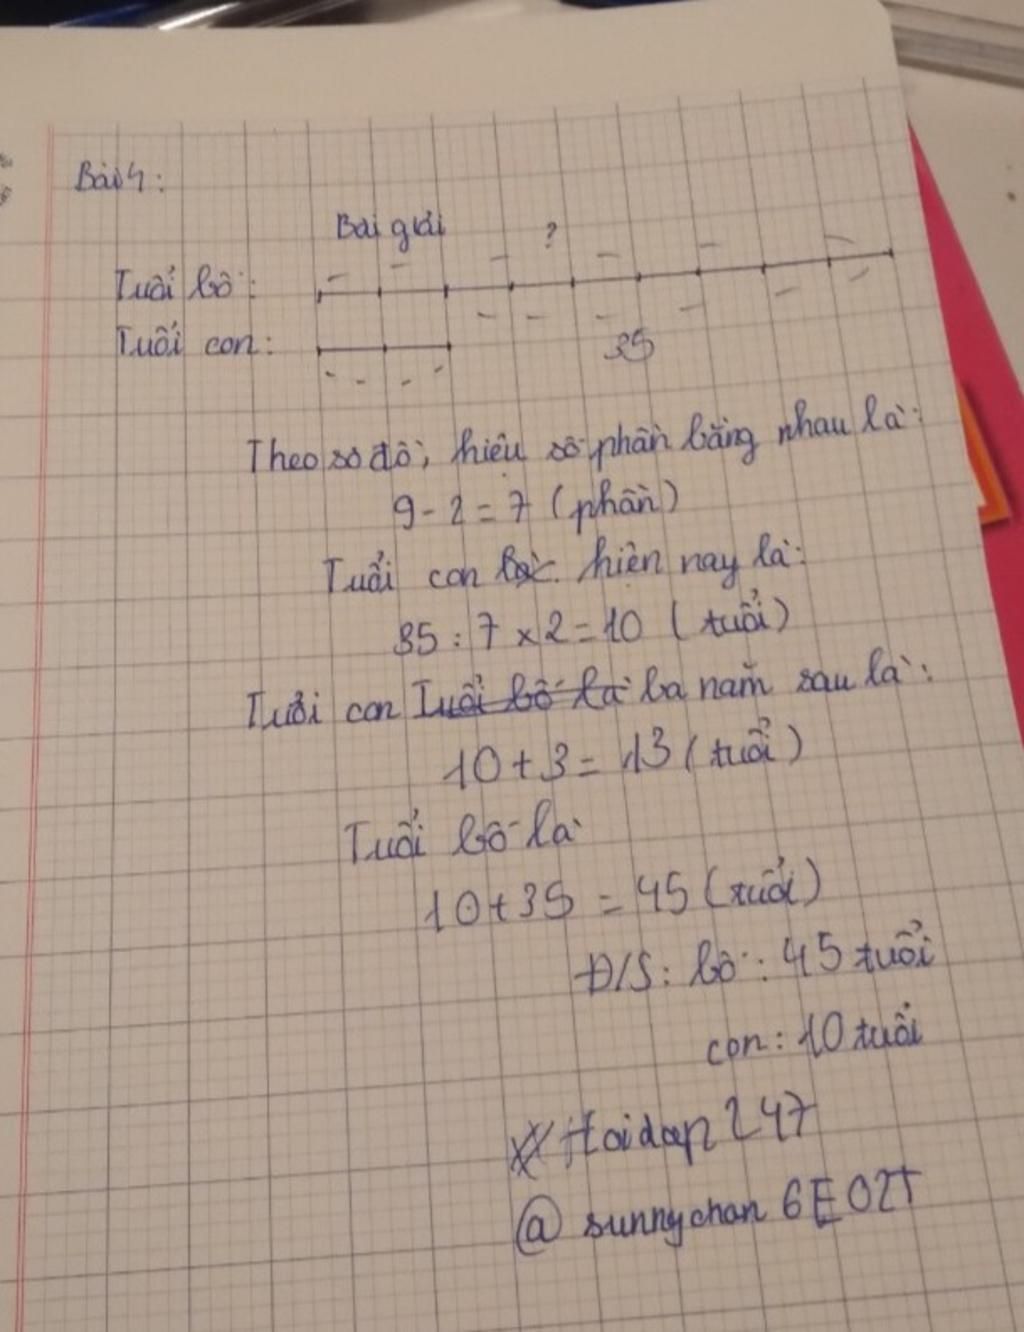 Bài 4:
Bài giải
?
Tuổi bố:
Tuổi con:
35
Theo sơ đồ, hiệu số phần bằng nhau là:
9 - 2 = 7 (phần)
Tuổi con hiện nay là:
35 : 7 x 2 = 10 (tuổi)
Tuổi con Tuổi bố là ba năm sau là:
10 + 3 = 13 (tuổi)
Tuổi bố là
10 + 35 = 45 (tuổi)
Đ/S: bố: 45 tuổi
con: 10 tuổi
# Hoidap 247
@ sunnychan 6E02T